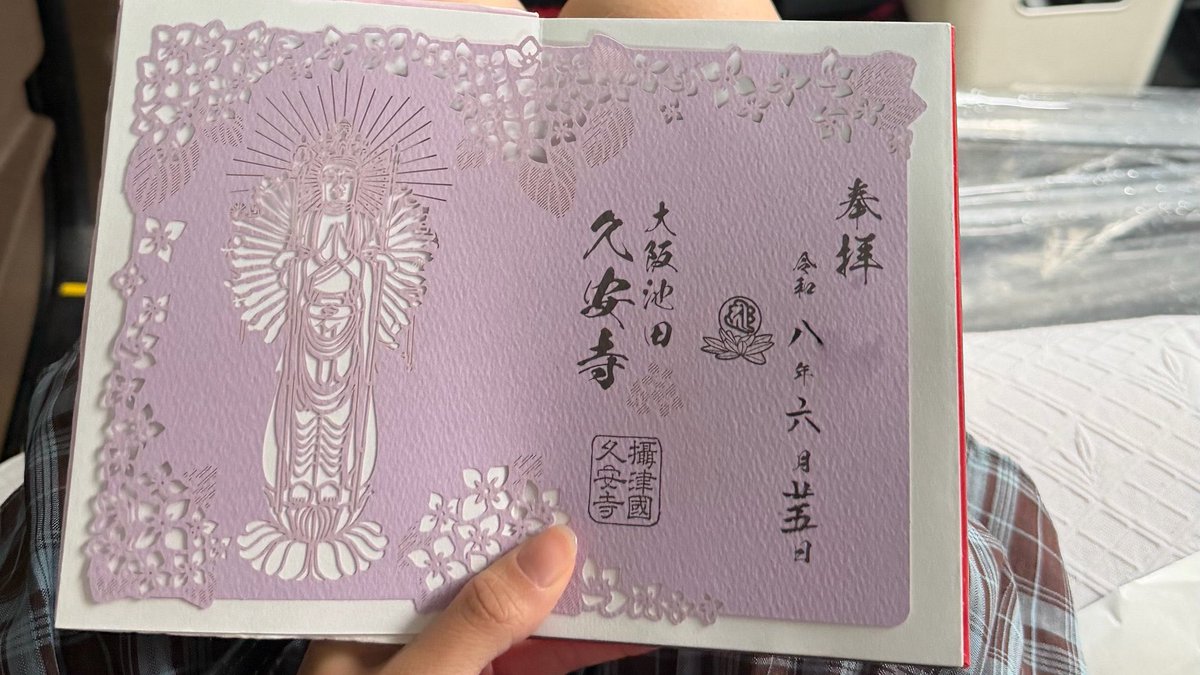 奉拝
令和八年六月廿五日
大阪池田
久安寺
攝津國
久安寺